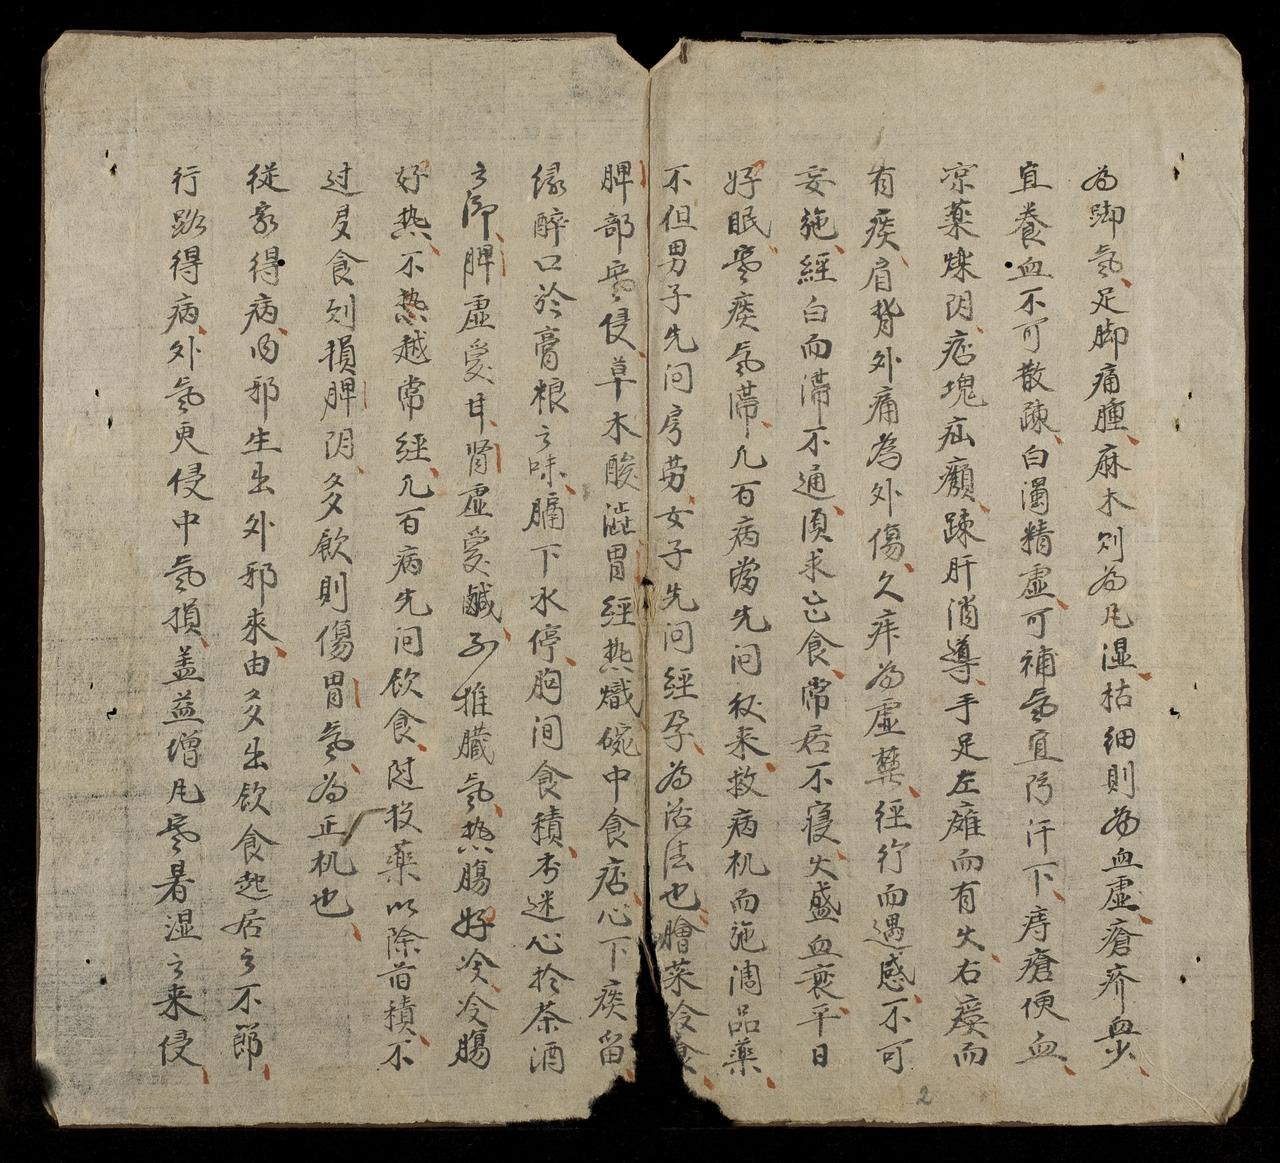 為脚氣足脚痛腫麻木則為凡湿枯細則為血虛瘡疥血少
宜養血不可散踈白濁精虛可補氣宜防汗下痔瘡便血
凉藥煉阴痞塊疝癲踈肝消導手足左癱而有火右瘓而
有痰肩背外痛為外傷久痺為虛弊經行而遇感不可
妄施經白而滯不通須求亡食常居不寝火盛血衰平日
好眠寒痰氣滯凢百病當先问役来救病机而施調品藥
不但男子先问房劳女子先问經孕為治法也膾菜冷食
脾部寒侵草木酸澁胃經热熾碗中食痞心下痰留
缘醉口於膏粮之味膈下水停胸间食積不迷心於茶酒
之節脾虛愛甘肾虛愛鹹以推臓氣热腸好冷冷腸
好热不热越常經凢百病先问飲食问投藥以除首積不
过度食則損脾阴多飲則傷胃氣為正机也
従家得病内邪生出外邪来由多出飲食起居之不節
行路得病外氣更侵中氣損盖益增凡寒暑湿之来侵